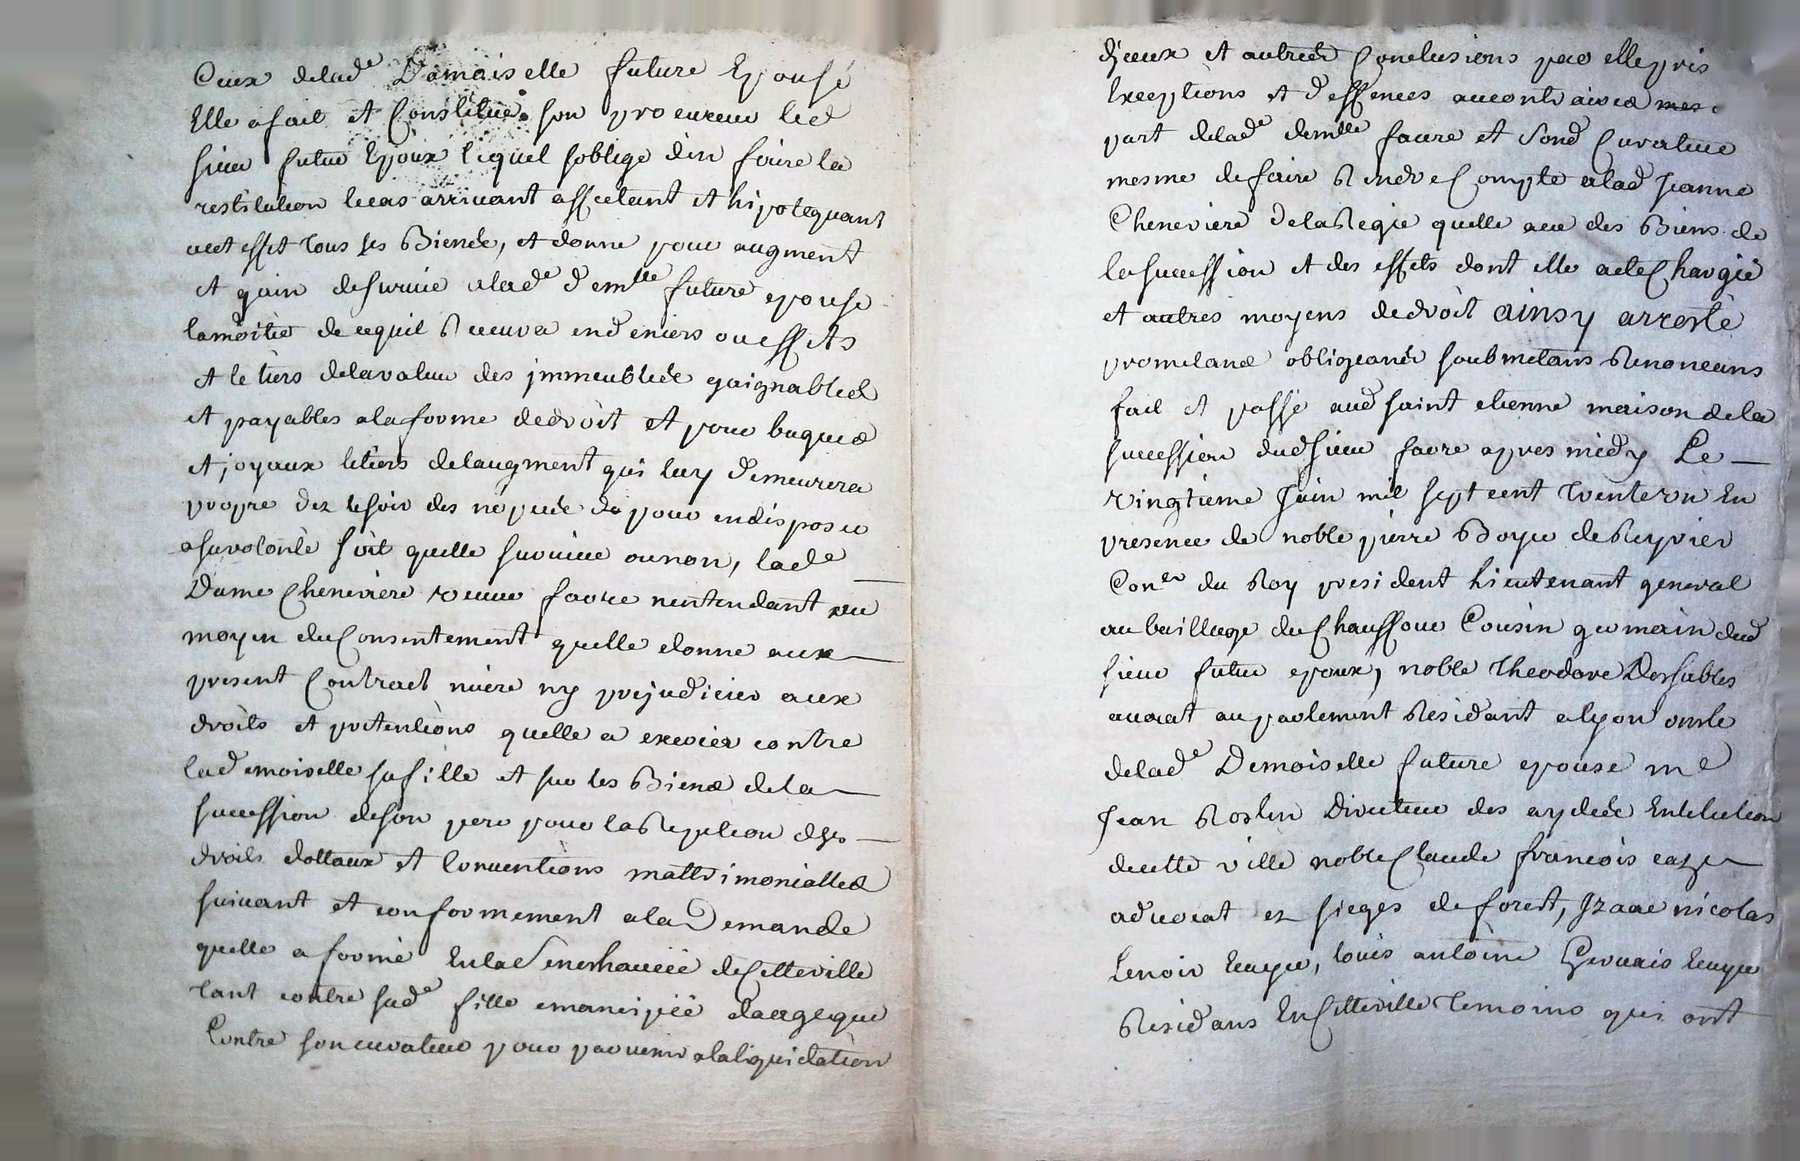 Ceux delade Damoiselle future Epouse
Elle a fait et Constitué son procureur led
sieur futur Epoux lequel soblige den faire la
restitution le cas arrivant affectant et hipotequant
acet effet tous ses Biens, et donne pour augment
et gain desurvie alade demlle future epouse
lamoitié de cequil Recevra endeniers ou effets
et le tiers delavaleur des jmmeubles gaignables
et payables alaforme dedroit et pour bagues
et joyaux letiers delaugment qui luy demeurera
propre dez lesoir des nopces pour endisposer
asavolonté soit quelle survive ounon, lade
Dame Cheneviere veuve favre nentendant au
moyen du Consentement quelle donne aux
present Contract nuire ny prejudicier aux
droits et pretentions quelle a exercer contre
lademoiselle safille et sur les Biens dela
succession deson pere pour la Repetion de ses
droits dottaux et Conventions mattrimonialles
suivant et conformement ala Demande
quelle a formé Enla senechaucée deCetteville
tant contre sade fille emancipée daage que
Contre son curateur pour parvenir alaliquidation
djceux et autres Conclusions par elle pris
Exceptions et deffences aucontraires
part delade demlle favre et sond Curateur
mesme defaire Rendre Compte alad Jeanne
Cheneviere delaRegie quelle a eu des Biens de
lasuccession et des effets dont elle aeteChargié
et autres moyens dedroit ainsy arresté
prometans obligeants soubmetans Renonceans
fait et passé aud saint etienne maison dela
succession dudsieur favre apres midy Le
vingtieme Juin mil sept cent trente un En
presence de noble pierre Boyer de
Coner du Roy president Lieutenant general
au bailliage duChauffour Cousin germain dud
sieur futur epoux, noble theodore Dessables
avocat auparlement Residant alyon oncle
delade Demoiselle future epouse me
Jean Roslin Directeur des aydes Enlelection
decette ville noble Claude françois
advocat ez sieges deforest, Jzaac nicolas
Lenoir Ecuyer, loüis antoine Gervais Ecuyer
Residans EnCetteville temoins qui ont